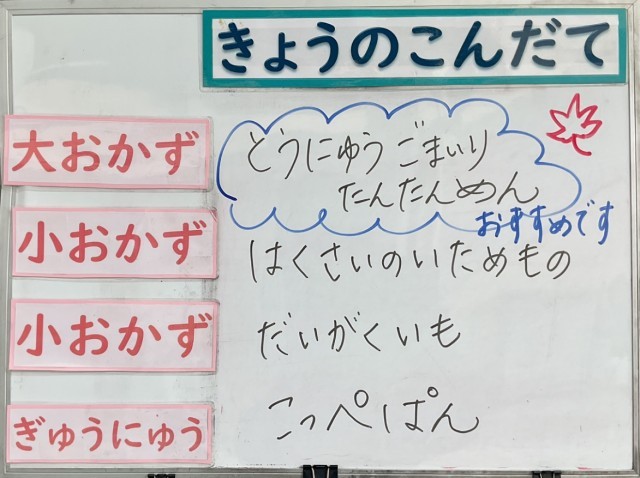 きょうのこんだて
大おかず
とうにゅう ごまいり
たんたんめん
おすすめです
小おかず
はくさいのいためもの
小おかず
だいがくいも
ぎゅうにゅう
こっぺぱん